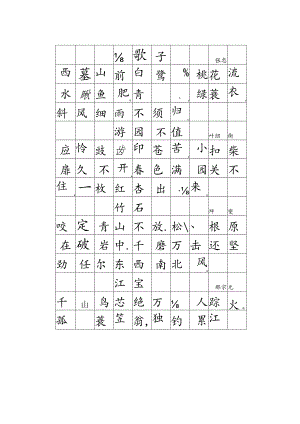 ⅛ 歌 子 张志
西 墓 山 前 白 鹭 % 桃 花 流
水 鳜 鱼 肥 青 绿 蓑 衣
斜 风 细 雨 不 须 归
游 园 不 值 叶绍 南
应 怜 歧 齿 印 苍 苔 小 扣 柴
扉 久 不 开 春 色 满 园 关 不
住 一 枝 红 杏 出 ·⅛ 来
竹 石 燮
咬 定 青 山 不 放. 松\、 根 原
在 破 岩 中, 千 磨 万 击 还 坚
劲 任 尔 东 西 南 北 风
江 宝 柳宗元
千 山 鸟 芯 绝 万 ⅛ 人 踪 火
孤 蓑 笠 翁, 独 钓 累 江